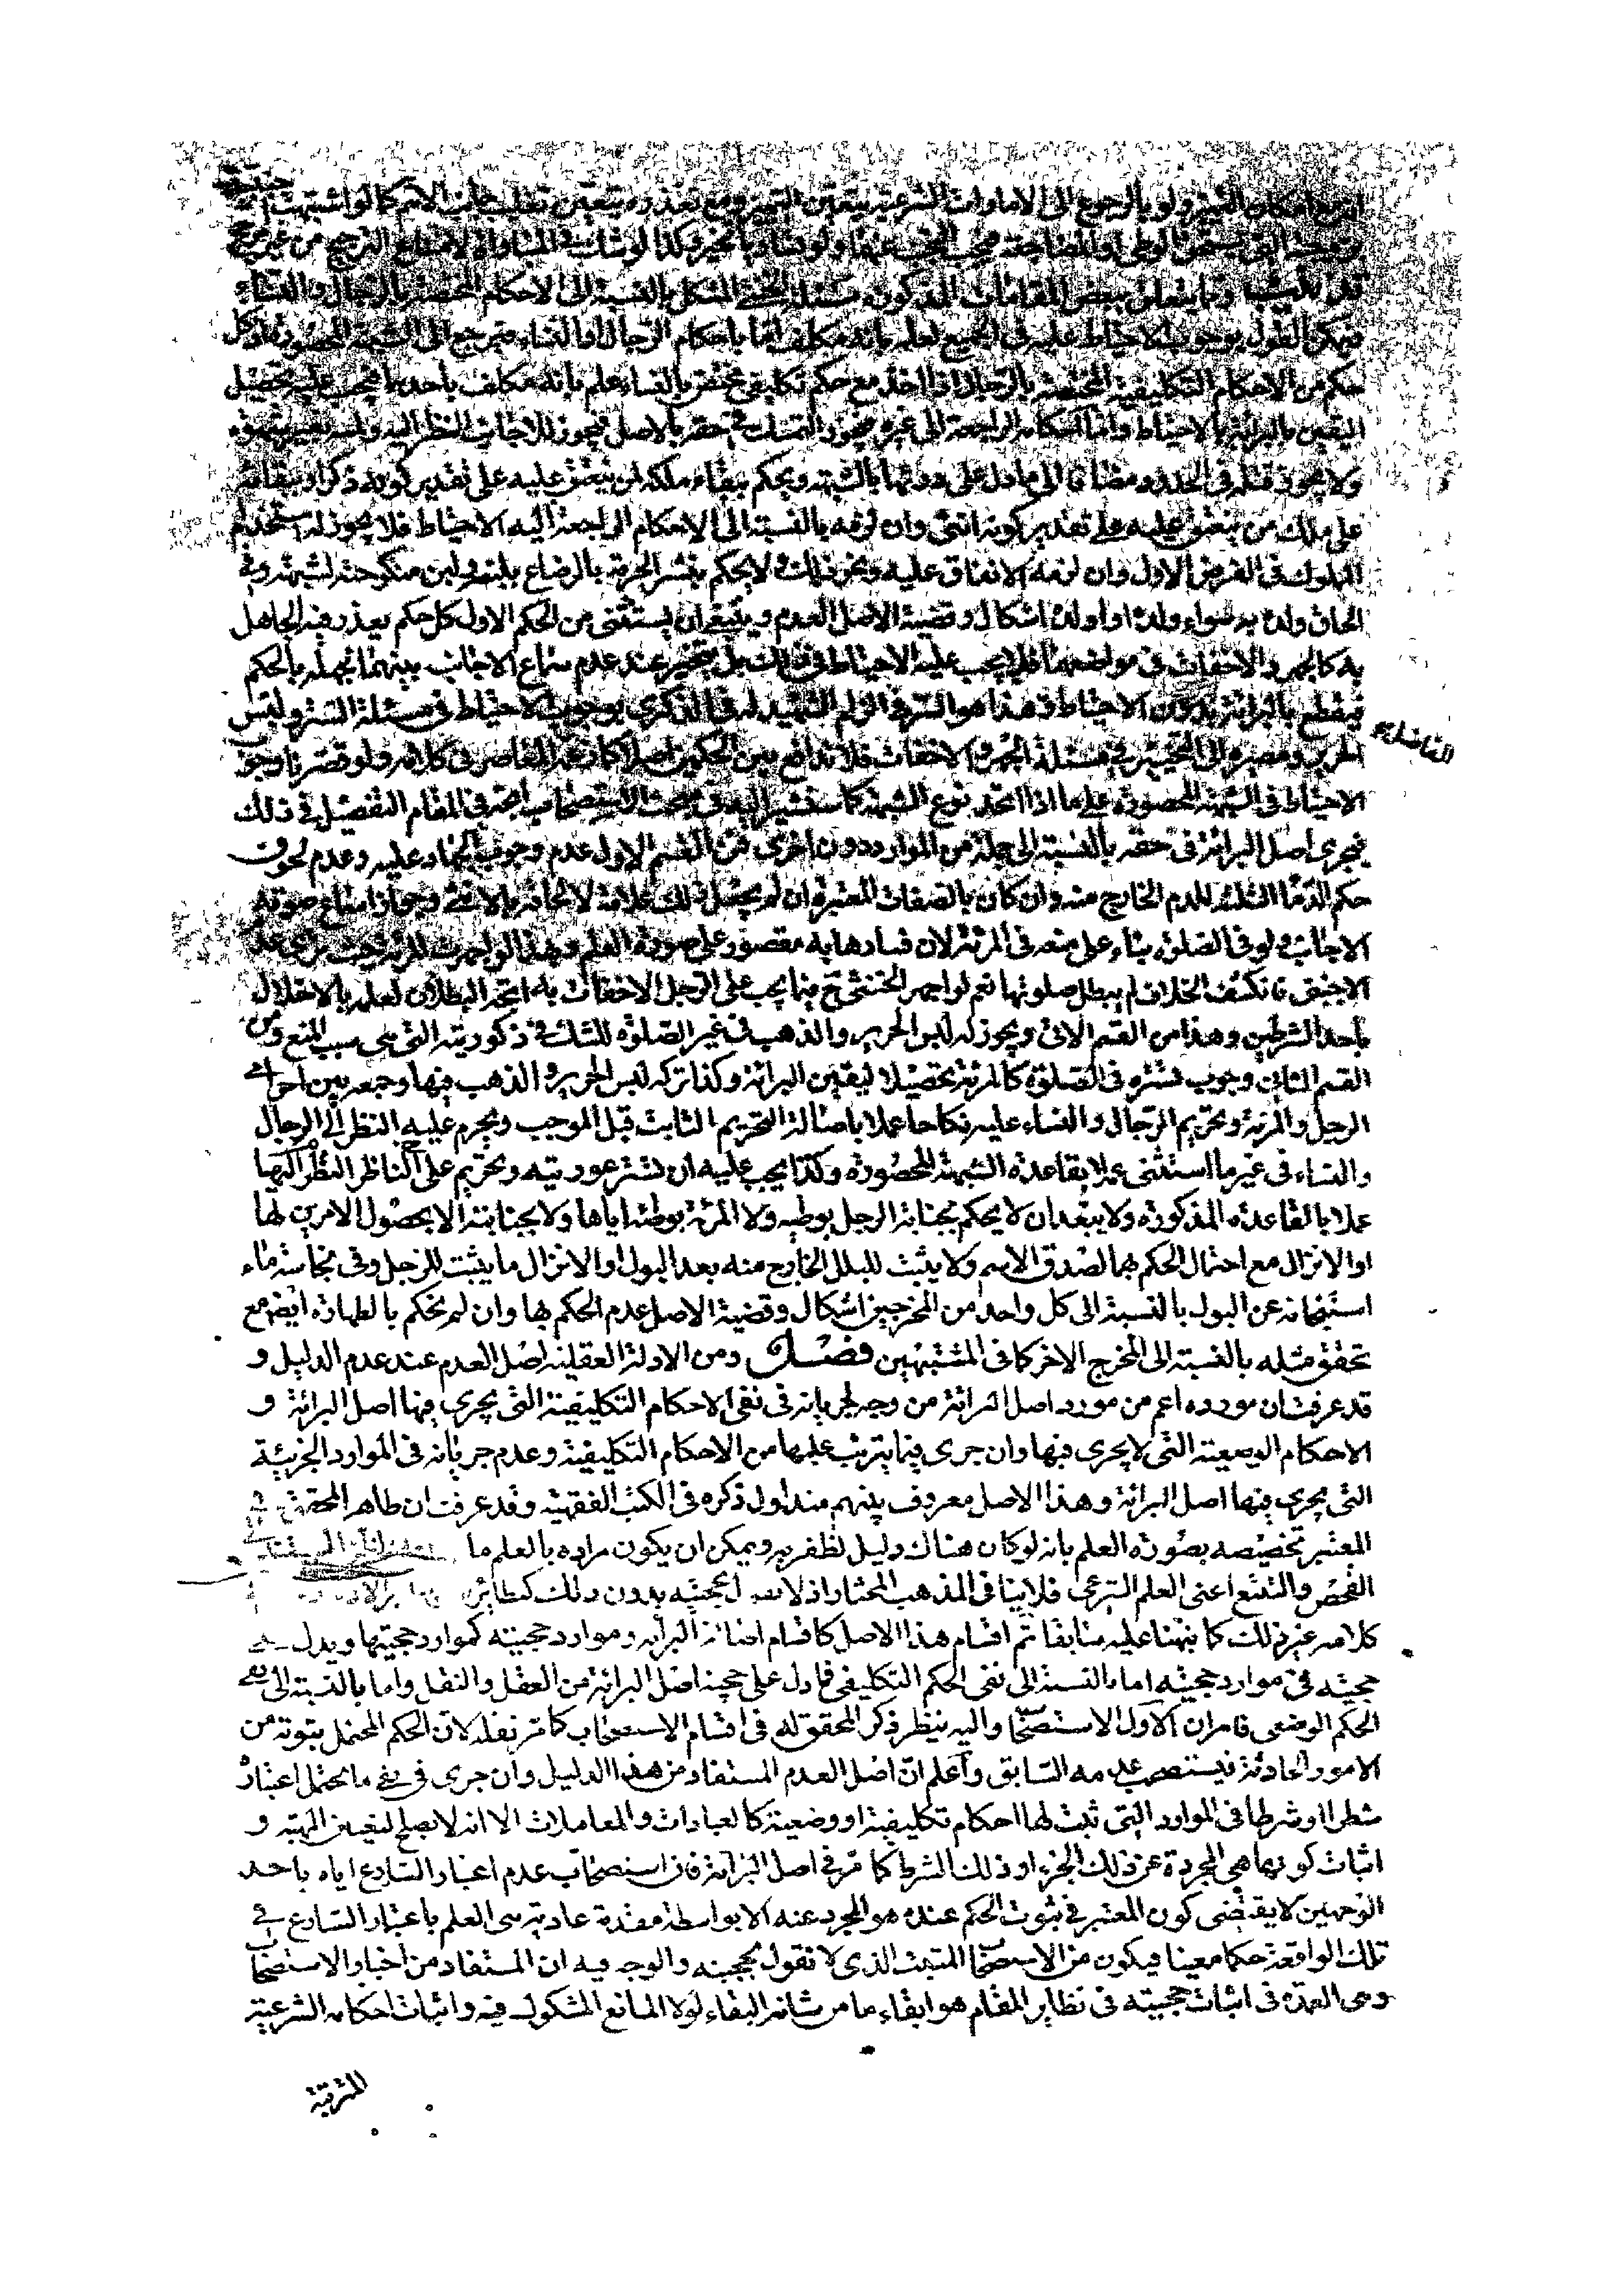 امكان التميز ولو بالرجوع الى الامارات الشرعية يتعين التميز ومع تعذره يتعين تغليب جانب الاسم كما لو اشتبهت
فيجب التجنب عنهما ولو تساويا تخير وكذا لو شك في المساواة لامتناع الترجيح من غير مرجح
تذنيب ومما يتعلق ببعض المقامات المذكورة مسئلة الخنثى المشكل بالنسبة الى الاحكام المختصة بالرجال والنساء
فيمكن القول بوجوب الاحتياط عليه في الجميع لعلمه بانه مكلف اما باحكام الرجال او النساء فيرجع الى الشبهة المحصورة اذ كل
حكم من الاحكام التكليفية المختصة بالرجال اذا اخذ مع حكم تكليفي مختص بالنساء علم بانه مكلف باحدهما فيجب عليه تحصيل
اليقين بالبرائة بالاحتياط واما احكامه الراجعة الى غيره فيجوز التمسك في حقه بالاصل فيجوز للاجانب النظر اليه ولمسه بغير شهوة
ولا يجوز قتله في الحدود مضافا الى ما دل على درئها بالشبهة ويحكم ببقاء ملكه لمن ينعتق عليه على تقدير كونه ذكرا وببقائه
على ملك من ينعتق عليه على تقدير كونه انثى وان لزمه بالنسبة الى الاحكام الراجعة اليه الاحتياط فلا يجوز له استخدام
المملوك في الفرض الاول وان لزمه الانفاق عليه ونحو ذلك ولا يحكم بنشر الحرمة بالرضاع بلبنه ولبن منكوحته لشبهة وفي
الحاق ولده به سواء ولده او اولده اشكال وقضية الاصل العدم وينبغي ان يستثنى من الحكم الاول كل حكم يعذر فيه الجاهل
به كالجهر والاخفات في مواضعهما فلا يجب عليه الاحتياط في ذلك بل يتخير عند عدم سماع الاجانب بينهما لجهله بالحكم
فيقطع بالبرائة بدون الاحتياط وهذا هو السر في التزام الشهيد له في الذكرى بوجوب الاحتياط في مسئلة الستر ولبس
الحرير ومصيره الى التخيير في مسئلة الجهر والاخفات فلا تدافع بين الحكمين اصلا كما زعمه المعاصر في كلامه ولو قصرنا وجوب
الفاضل
الاحتياط في الشبهة المحصورة على ما اذا اتحد نوع الشبهة كما سنشير اليه في مبحث الاستصحاب اتجه في المقام التفصيل في ذلك
فيجرى اصل البرائة في حقه بالنسبة الى جملة من الموارد دون اخرى فمن القسم الاول عدم وجوب الجهاد عليه وعدم لحوق
حكم الدماء الثلثة للدم الخارج منه وان كان بالصفات المعتبرة ان لم يجعل ذلك علامة لالحاقه بالانثى وجواز اسماع صوته
الاجانب ولو في الصلوة بناء على منعه في المرئة لان فسادها به مقصور على صورة العلم ولهذا لو اجهرت المرئة حيث ترى عدم
الاجنبي فانكشف الخلاف لم يبطل صلوتها نعم لو اجهر الخنثى ح فيما يجب على الرجل الاخفات به اتجه البطلان لعلمه بالاخلال
باحد الشرطين وهذا من القسم الاتى ويجوز له لبس الحرير والذهب في غير الصلوة للشك في ذكوريته التى هى سبب المنع ومن
القسم الثانى وجوب تستره في الصلوة كالمرئة تحصيلا ليقين البرائة وكذا تركه لبس الحرير والذهب فيها وجمعه بين احرامى
الرجل والمرئة وتحريم الرجال والنساء عليه نكاحا عملا باصالة التحريم الثابت قبل الموجب ويحرم عليه النظر الى الرجال
والنساء في غير ما استثنى عملا بقاعدة الشبهة المحصورة وكذا يجب عليه ان تستر عورتيه ويحتم على الناظر النظر اليهما
عملا بالقاعدة المذكورة ولا يبعد ان لا يحكم بجنابة الرجل بوطيه ولا المرئة بوطئه اياها ولا بجنابته الا بحصول الامرين لها
او الانزال مع احتمال الحكم بهما لصدق الاسم ولا يثبت للبلل الخارج منه بعد البول او الانزال ما يثبت للرجل وفي نجاسة ماء
استنجائه عن البول بالنسبة الى كل واحد من المخرجين اشكال وقضية الاصل عدم الحكم بها وان لم يحكم بالطهارة ايضا مع
تحقق مثله بالنسبة الى المخرج الاخر كما في المشتبهين فصل ومن الادلة العقلية اصل العدم عند عدم الدليل و
قد عرفت ان مورده اعم من مورد اصل البرائة من وجه لجريانه في نفى الاحكام التكليفية التى يجرى فيها اصل البرائة و
الاحكام الوضعية التى لا يجرى فيها وان جرى فيما يترتب عليها من الاحكام التكليفية وعدم جريانه في الموارد الجزئية
التى يجرى فيها اصل البرائة وهذا الاصل معروف بينهم متداول ذكره في الكتب الفقهية وقد عرفت ان ظاهر المحقق في
المعتبر تخصيصه بصورة العلم بانه لو كان هناك دليل لظفر به ويمكن ان يكون مراده بالعلم ما
الفحص والتتبع اعنى العلم الشرعى فلا ينافى المذهب المختار اذ لا بحجيته بدون ذلك كنظائره
كلامه غير ذلك كما نبهنا عليه سابقا ثم اقسام هذا الاصل كاقسام اصالة البرائة وموارد حجيته كموارد حجيتها ويدل على
حجيته في موارد حجيته اما بالنسبة الى نفى الحكم التكليفى فما دل على حجية اصل البرائة من العقل والنقل واما بالنسبة الى نفى
الحكم الوضعى فامران الاول الاستصحاب واليه ينظر ذكر المحقق له في اقسام الاستصحاب كما مر نقله لان الحكم المحتمل ثبوته من
الامور الحادثة فيستصحب عدمه السابق واعلم ان اصل العدم المستفاد من هذا الدليل وان جرى في نفى ما يحتمل اعتباره
شطرا او شرطا في الموارد التى ثبت لها احكام تكليفية او وضعية كالعبادات والمعاملات الا انه لا يصلح لتعيين المهية و
اثبات كونها هى المجردة عن ذلك الجزء او ذلك الشرط كما مر في اصل البرائة فان استصحاب عدم اعتبار الشارع اياه باحد
الوجهين لا يقتضى كون المعتبر في ثبوت الحكم عنده هو المجرد عنه الا بواسطة مقدمة عادية هى العلم باعتبار الشارع في
تلك الواقعة حكما معينا فيكون من الاستصحاب المثبت الذى لا نقول بحجيته والوجه فيه ان المستفاد من اخبار الاستصحاب
وهى العمدة في اثبات حجيته في نظاير المقام هو ابقاء ما من شانه البقاء لولا المانع المشكوك فيه واثبات احكامه الشرعية
المترتبة